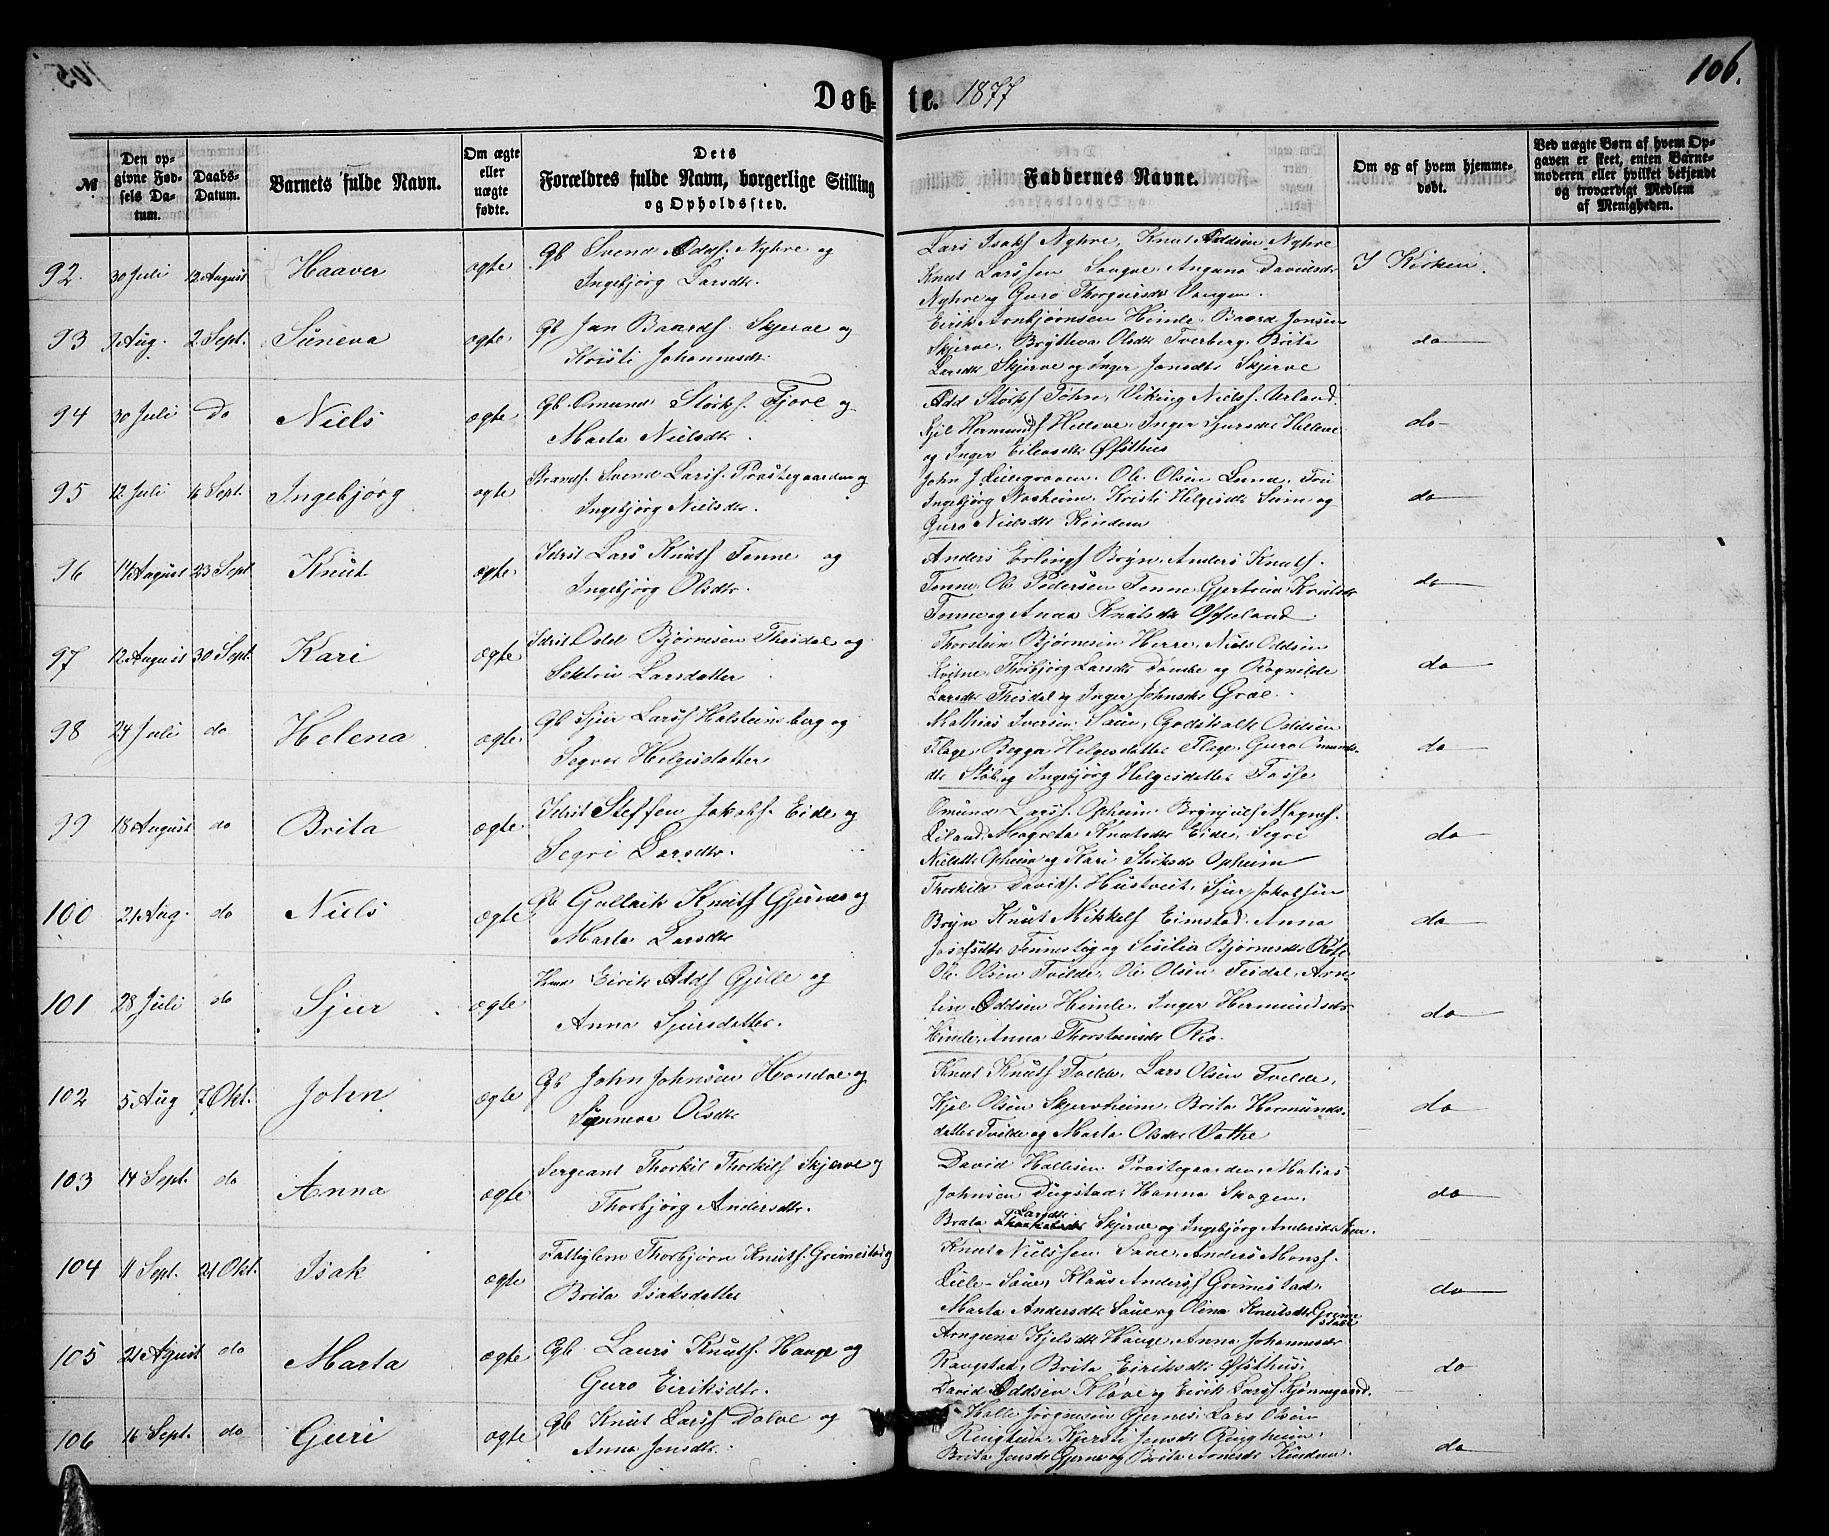 106.
Døb- te. 1877
№
Den op-
givne Fød-
sels Da-
tum.
Daabs-
Datum.
Barnets fulde Navn.
Om ægte
eller
uægte
fødte.
Dets
Forældres fulde Navn, borgerlige Stilling
og Opholdssted.
Faddernes Navne.
Om og af hvem hjemme-
døbt.
Ved uægte Børn af hvem Op-
gaven er skeet, enten Barne-
moderen eller hvilket bekjendt
og troværdigt Medlem
af Menigheden.
92. 30 Juli 12 August Haaver ægte Gb Svend Odds. Nyhre og
Ingebjørg Larsdtr.
Lars Isaks Nyhre, Knut Oddsen Nyhre
Knut Larssen Saugve, Angana Davidsdr
Nyhre og Guro Thorgeirsdr Vangen.
I Kirken.
93 9 Aug. 2 Sept. Suneva ægte Gb Jan Baards. Skjerve og
Kristi Johannesdtr
Eirik Arnbjørnsen Himle, Baard Jonsen
Skjerve, Brytteva Olsdtr Tverberg, Brita
Larsdtr Skjerve og Inger Jonsdtr Skjerve
do
94 30 Juli Do Niels ægte Gb Omund Størks. Fjore og
Marta Nielsdtr.
Odd Størks Fohre, Viking Niels. Urland.
Kjel Hermunds Helleve, Inger Sjursdtr Helleve
og Inger Eilevsdtr Øfsthus
do
95 12 Juli 16 Sept. Ingebjørg ægte Strands. Svend Larss. Prestegaarden og
Ingebjørg Nielsdtr.
John J. Lillegraven, Ole Olsen Lunde, Fru
Ingebjørg Nasheim, Kristi Helgesdtr Seim og
Guro Nielsdtr Kindem
do
96 14 August 23 Sept Knut ægte Idrst Lars Knuts Tonne og
Ingebjørg Olsdtr.
Anders Erlings Bryn, Anders Knuts.
Tonne, Ole Pedersen Tonne, Gjertrud Knutsdtr
Tonne og Anna Knutsdtr
do
97 12 August 30 Sept. Kari ægte Idrst Odd Bjørnesen Thesdal og
Larsdatter
Thorstein Bjørnesen Herre, Niels Oddsen
Kvitne, Thorbjørg Larsdtr Dønske og Ragnilde
Larsdtr Thesdal og Inger Johnsdtr Groe.
do
98 24 Juli do Helena ægte Gb Sjur Larss Holsteinsberg og
Segvor Helgesdatter
Mathias Iversen Saue, Godskalk Oddsen
Flage, Begga Helgesdatter Flage, Guro Omunds-
dtr Støb og Ingebjørg Helgesdatter Fasse
do
99 18 August do Brita ægte Idrst Steffen Jakobs. Eide og
Segri Larsdtr.
Omund Larss. Opheim, Brynjulf Magnes.
Liland, Magreta Knutsdtr Eide, Segri
Nielsdtr Opheim og Kari Størksdr Opheim
do
100 21 Aug. do Niels ægte Gb Gullaik Knuts Gjernes og
Marta Larsdtr
Thorkild Davids. Hustveit, Sjur Jakobsen
Bryn Knut Mikkels Eimstad, Anna
Josefsdtr Tennestig og Sesilia Bjørnesdtr Røte
do
101 28 Juli do Sjur ægte Eirik Odds Gjelle og
Anna Sjursdatter.
Ole Olsen Tvilde, Ole Olsen Tesdal, Arne
Oddsen Himle, Inger Hermundsdr
Himle, Anna Thorsteinsdr Rio.
do
102 5 Aug 7 Okt. John ægte Gb John Johnsen Hondve og
Synneva Olsdtr
Knut Knuts Tvilde, Lars Olsen Tvilde,
Kjel Olsen Skjervheim, Brita Hermunds-
datter Tvilde og Marta Olsdtr Vethe
do
103 14 Sept. do Anna ægte Sergeant Thorkil Thorkils Skjerve og
Thorbjørg Andersdtr.
David Hallesen Prestegaarden, Matias
Johnsen Dugstad, Hanna Skogen,
Brita Larsdtr. Skjerve og Ingebjørg Andersdtr
do
104 11 Sept. 21 Okt. Isak ægte Fattiglem Thorbjørn Knuts. Grimestad og
Brita Isaksdatter
Knut Nielssen Saue, Anders Mons.
Lille-Saue, Klaus Anders Grimestad,
Marta Andersdtr Saue og Olina Knutsdtr Grime-
stad
do
105 21 August do Marta ægte Gb. Laurs Knuts. Hauge og
Guro Eiriksdtr.
Arngiena Kjelsdtr Hauge, Anna Johannesdr
Rangstad, Brita Eiriksdtr Øfsthus,
David Oddsen Kløve og Eirik Larss Kjønnegaard.
do
106 16 Sept. do Guri ægte Gb Knut Larss Dalve og
Anna Jonsdtr.
Halle Jørgensen Gjernes, Lars Olsen
Ringheim, Kjersti Jonsdtr Ringheim,
Brita Jonsdtr Gjerne og Brita Arnesdtr Kindem.
do